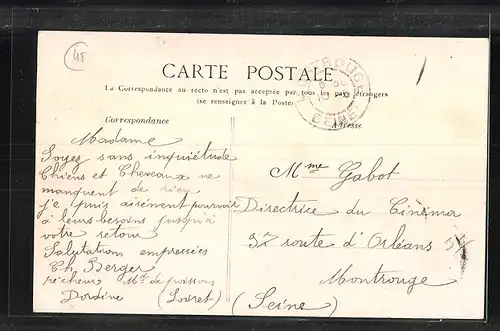 45
CARTE POSTALE
La Correspondance au recto n'est pas acceptée par tous les pays étrangers
(se renseigner à la Poste)
MONTROUGE
SEINE
Correspondance
Adresse
Madame
Soyez sans inquiétude
Chiens et Chevaux ne
manquent de rien
je puis aisément pourvoir
à leurs besoins jusqu'à
votre retour
Salutations empressées
Ch. Berger
pêcheur Md de poissons
Dordine (Loiret)
Mme Gabot
Directrice du Cinéma
37 route d'Orléans 37
Montrouge
(Seine)